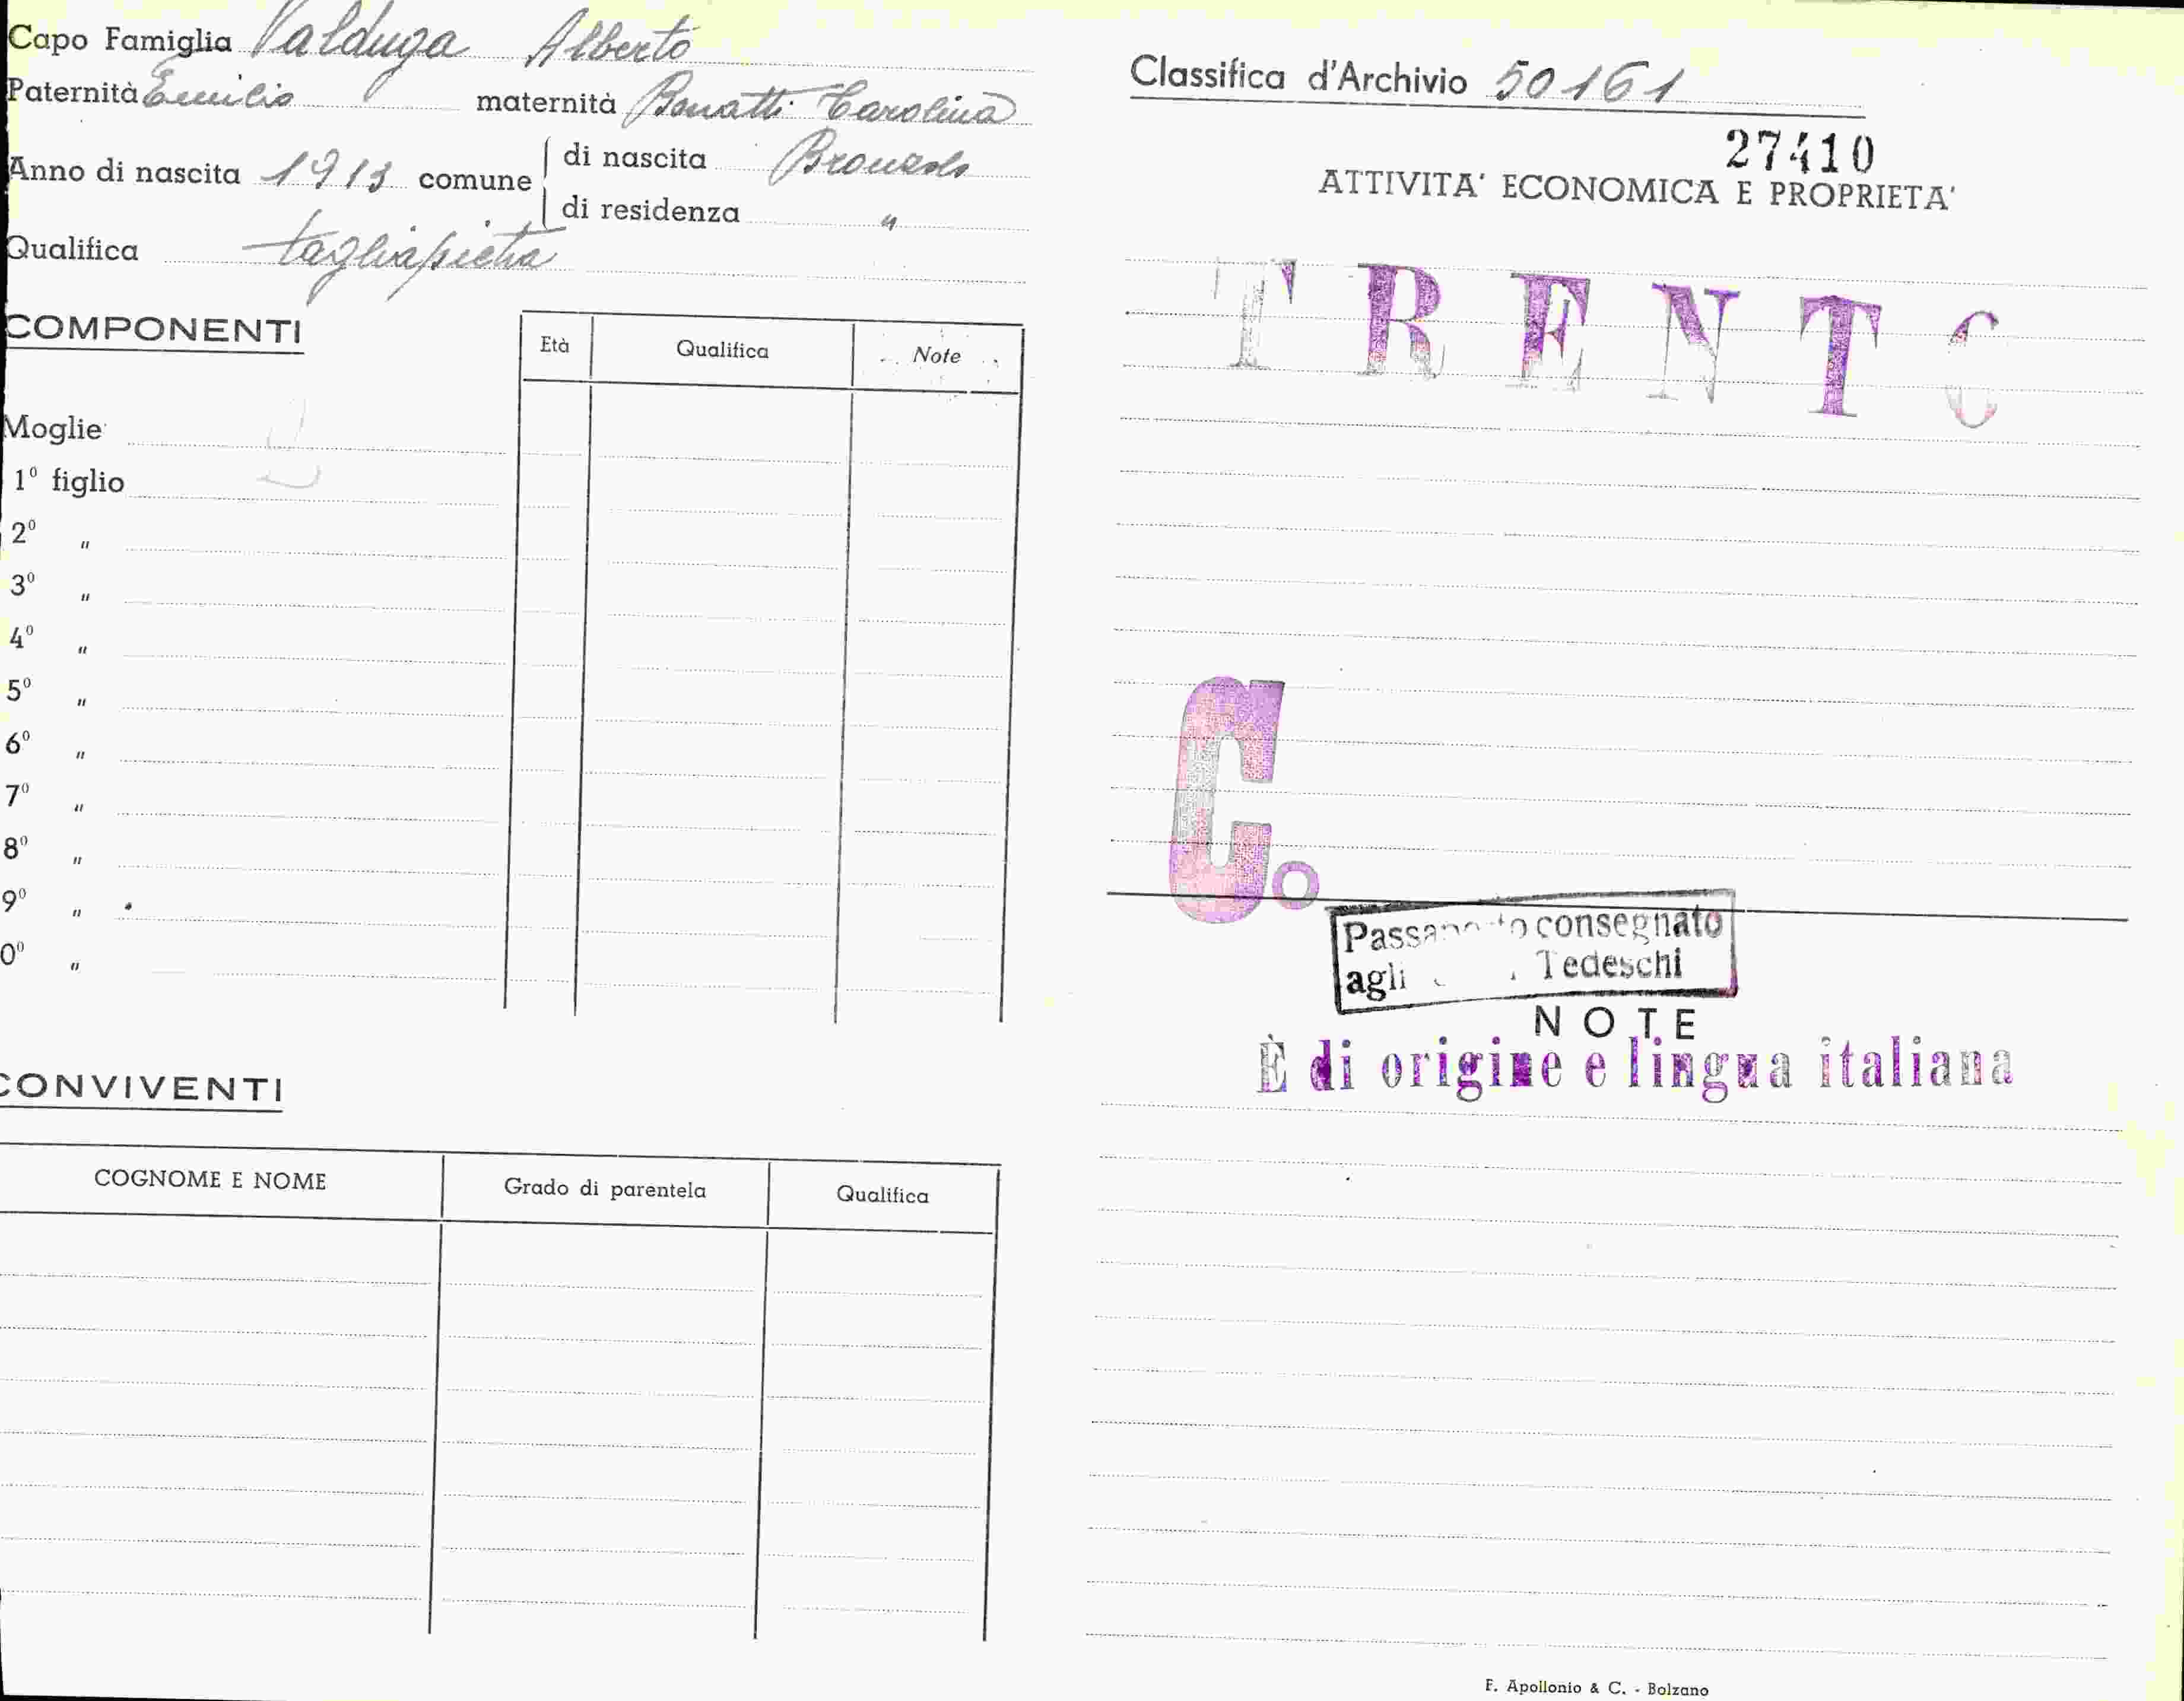 Capo Famiglia Valduga Alberto
Paternità Emilio maternità Bonatti Carolina
Anno di nascita 1913 comune di nascita Bronzolo
di residenza "
Qualifica tagliapietra
COMPONENTI
Età Qualifica Note
Moglie
1º figlio
2º "
3º "
4º "
5º "
6º "
7º "
8º "
9º "
0º "
CONVIVENTI
COGNOME E NOME Grado di parentela Qualifica
Classifica d'Archivio 50161
27410
ATTIVITA' ECONOMICA E PROPRIETA'
TRENTO
C.
consegnato
agli Tedeschi
NOTE
È di origine e lingua italiana
F. Apollonio & C. - Bolzano